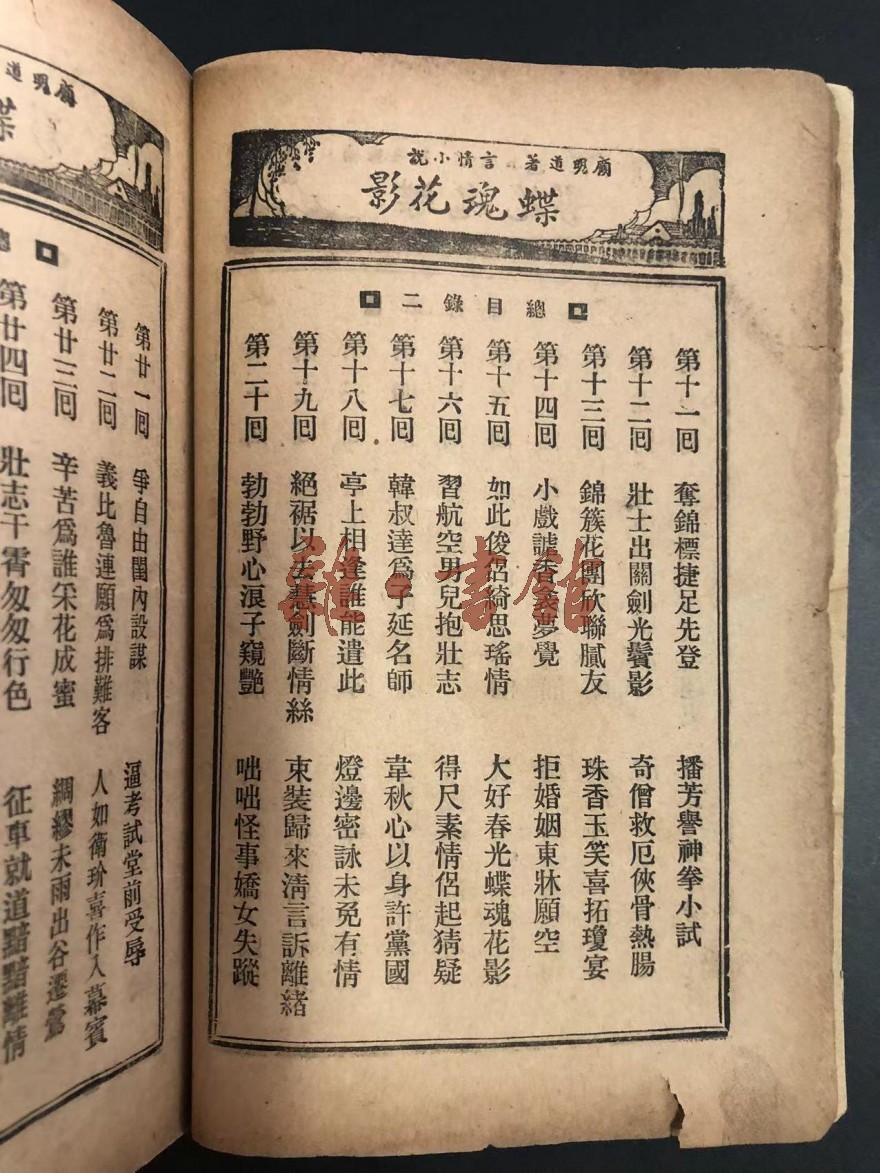 顧明道著 言情小說
蝶魂花影
總目錄二
第十一囘 奪錦標捷足先登 播芳譽神拳小試
第十二囘 壯士出關劍光鬢影 奇僧救厄俠骨熱腸
第十三囘 錦簇花團欣聯膩友 珠香玉笑喜拓瓊宴
第十四囘 小戲謔香衾夢覺 拒婚姻東牀願空
第十五囘 如此俊侶綺思瑤情 大好春光蝶魂花影
第十六囘 習航空男兒抱壯志 得尺素情侶起猜疑
第十七囘 韓叔達爲子延名師 韋秋心以身許黨國
第十八囘 亭上相逢誰能遣此 燈邊密詠未免有情
第十九囘 絕裾以去慧劍斷情絲 束裝歸來淸言訴離緖
第二十囘 勃勃野心浪子窺艷 咄咄怪事嬌女失蹤
顧明道
蝶
總
第廿一囘 爭自由閨內設謀 逼考試堂前受辱
第廿二囘 義比魯連願爲排難客 人如衛玠喜作入幕賓
第廿三囘 辛苦爲誰采花成蜜 綢繆未雨出谷遷鶯
第廿四囘 壯志干霄匆匆行色 征車就道黯黯離情
書館